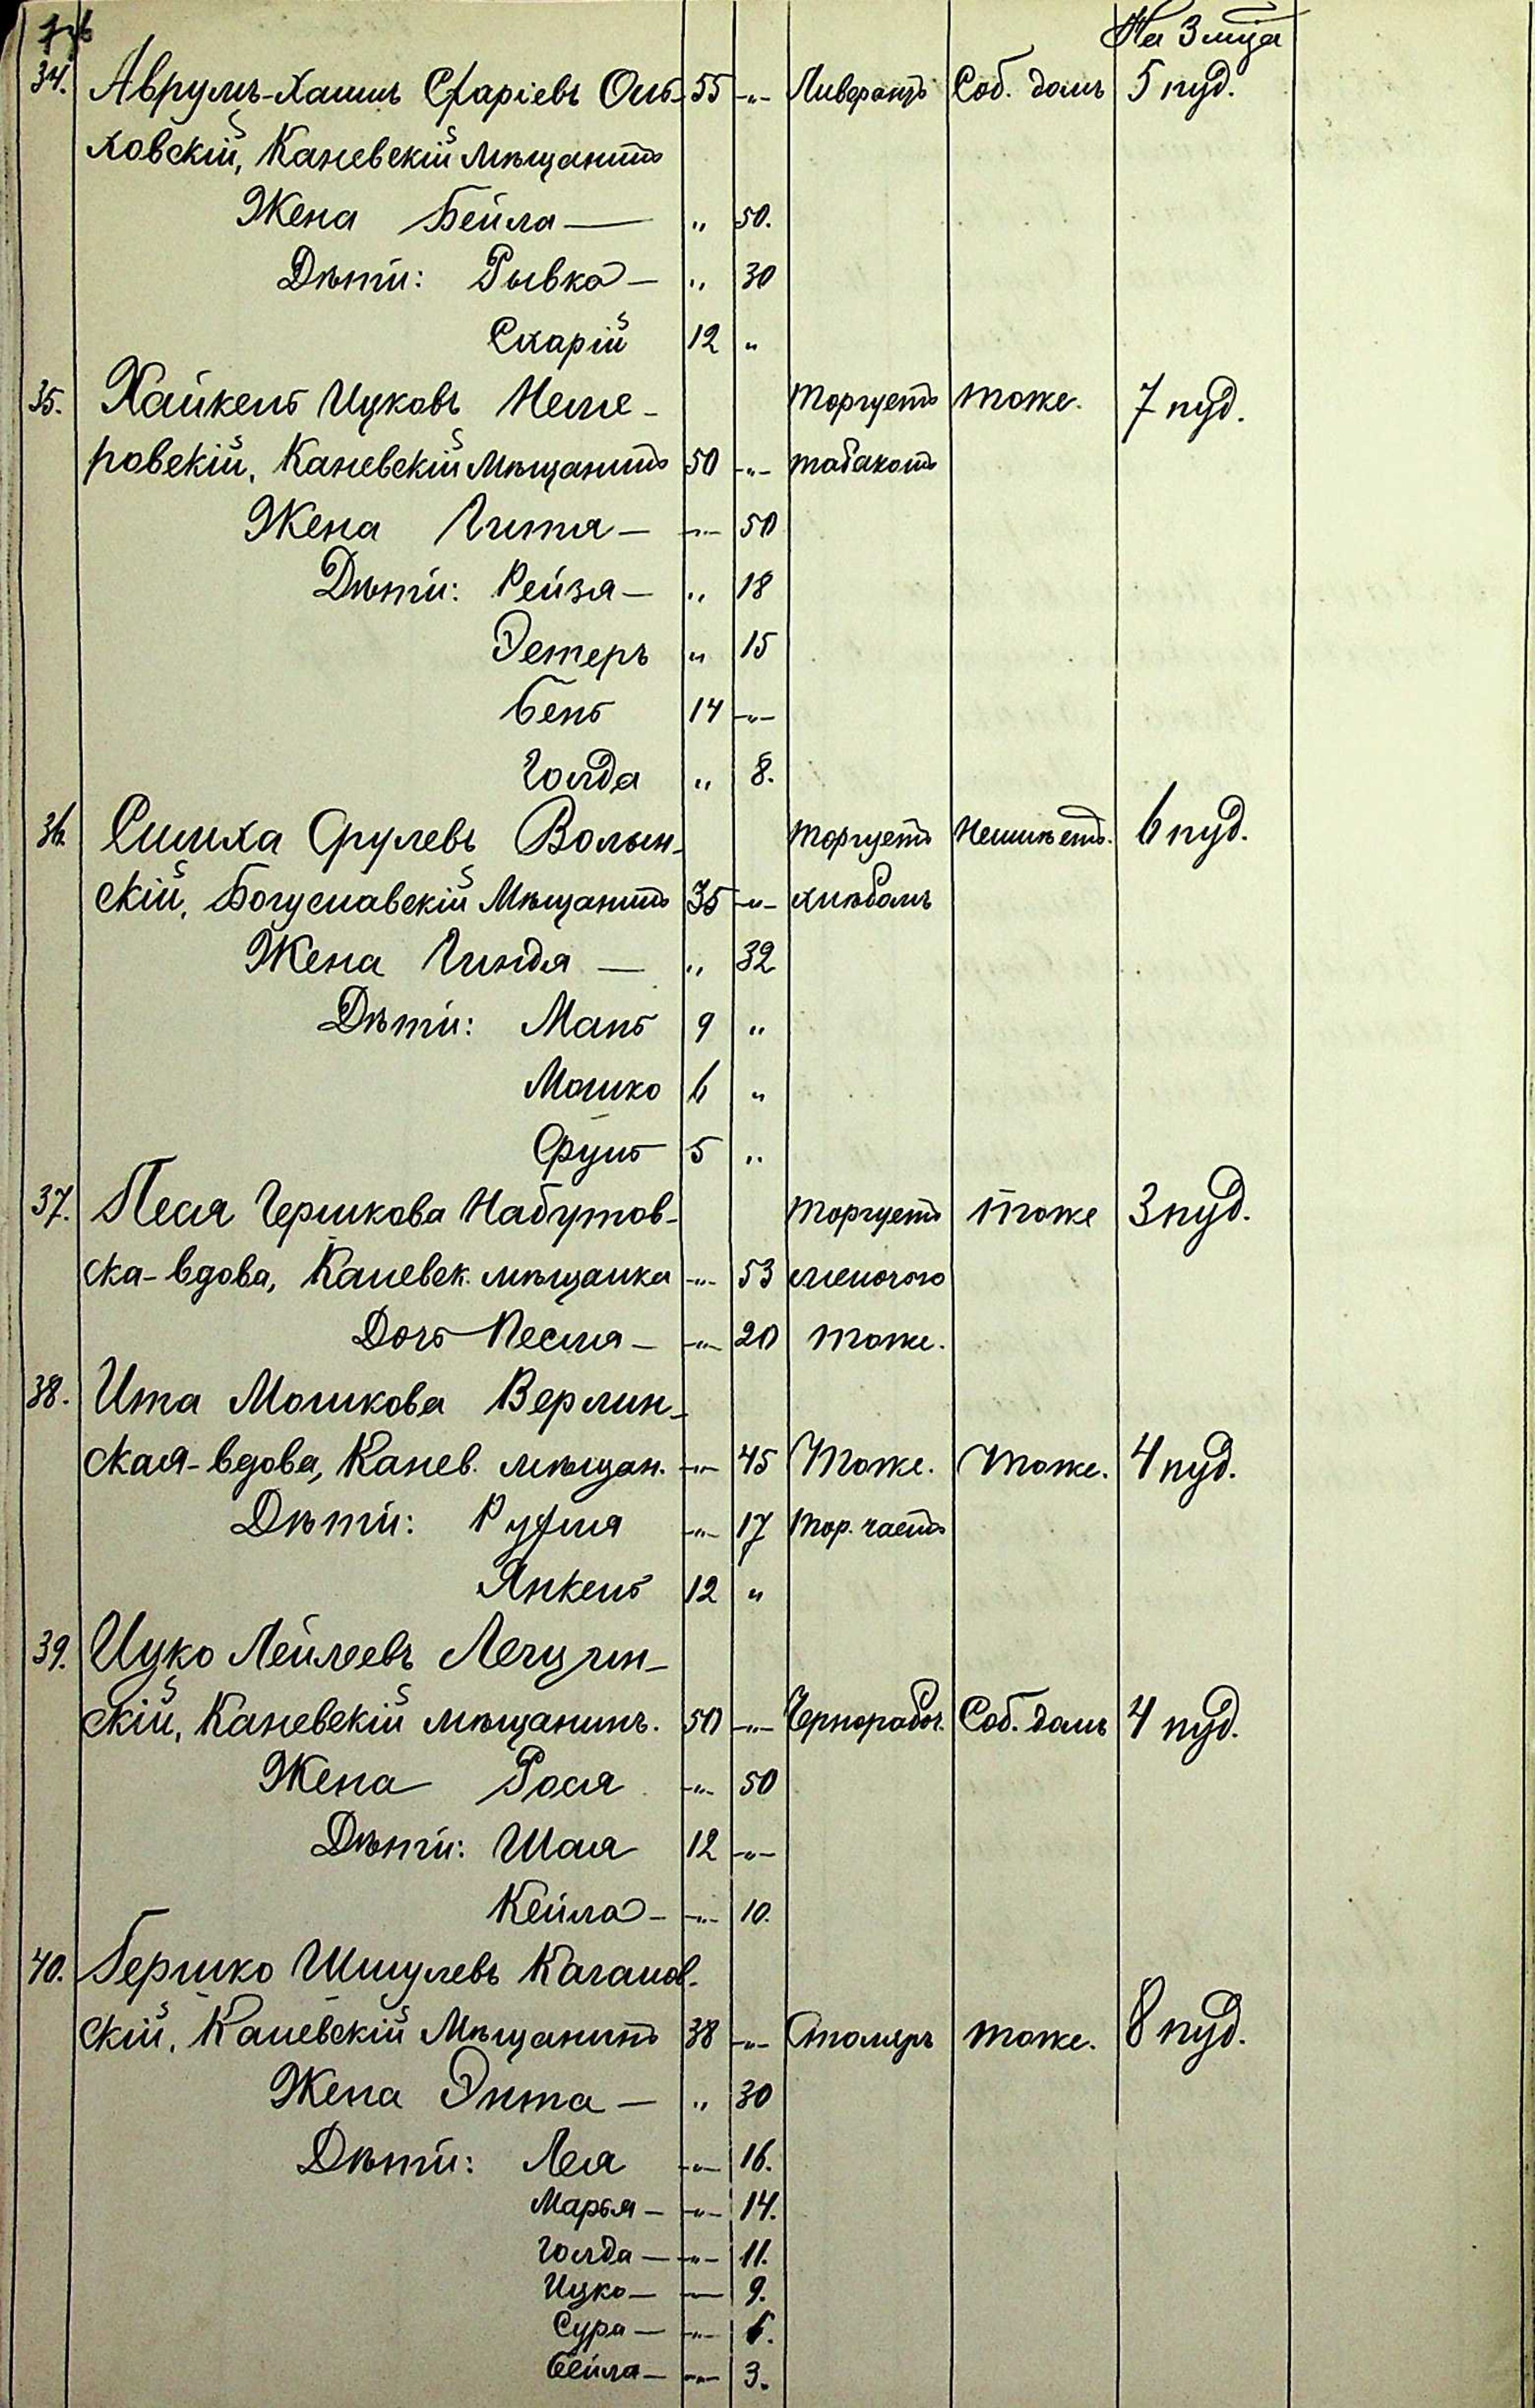 На 3 мѣца
34. Аврумъ-Хаимъ Схаріевъ Оль- 55 -„- Ливерантъ Соб. домъ 5 пуд.
ховскій, Каневскій Мѣщанинъ
Жена Бейла — „ 50.
Дѣти: Рывка — „ 30
Схарій 12 „
35. Хайкель Ицковъ Неме- Торгуетъ тоже. 7 пуд.
ровскій, Каневскій Мѣщанинъ 50 -„- табакомъ
Жена Гитя — -„- 50
Дѣти: Рейзя — „ 18
Эстеръ „ 15
Бень 14 -„-
Голда „ 8.
36. Симха Срулевъ Волын- Торгуетъ Неимѣетъ. 6 пуд.
скій, Богуславскій Мѣщанинъ 35 -„- хлѣбомъ
Жена Гиндя — „ 32
Дѣти: Мань 9 „
Мошко 6 „
Сруль 5 „
37. Песя Гершкова Набутов- Торгуетъ тоже 3 пуд.
ска-вдова, Каневск. мѣщанка -„- 53 мелочью
Дочь Песля — -„- 20 тоже.
38. Ита Мошкова Верлин-
ская-вдова, Канев. мѣщан. -„- 45 Тоже. Тоже. 4 пуд.
Дѣти: Рухля -„- 17 Тор. частъ
Янкель 12 „
39. Ицко Лейзеевъ Лещин-
скій, Каневскій мѣщанинъ. 50 -„- Чернорабоч. Соб. домъ 4 пуд.
Жена Рося -„- 50
Дѣти: Шая 12 -„-
Кейла — -„- 10.
40. Гершко Шмулевъ Каганов-
скій, Каневскій Мѣщанинъ 38 -„- Столяръ тоже. 8 пуд.
Жена Энта — „ 30
Дѣти: Лея -„- 16.
Марья — -„- 14.
Голда — -„- 11.
Ицко — — 9.
Сура — -„- 6.
Бейла — -„- 3.